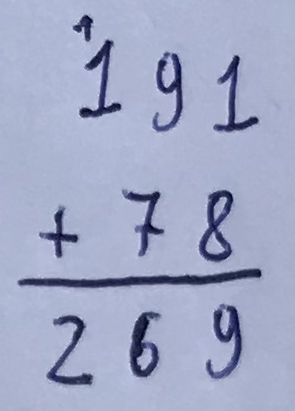 1
191
+ 78
269